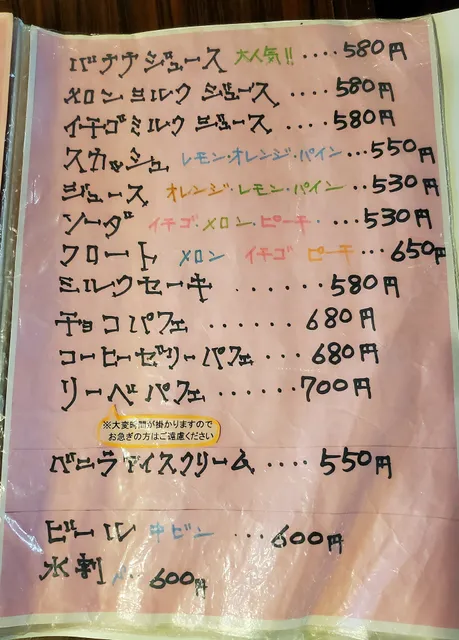 バナナジュース 大人気!! ････580円
メロンミルク ジュース ････580円
イチゴミルク ジュース ････580円
スカッシュ レモン･オレンジ･パイン ･･･550円
ジュース オレンジ･レモン･パイン ･･･530円
ソーダ イチゴ･メロン･ピーチ･ ･･･530円
フロート メロン イチゴ ピーチ ･･･650円
ミルクセーキ ･･････580円
チョコパフェ ･･････680円
コーヒーゼリーパフェ ････680円
リーベパフェ ･･････700円
※大変時間が掛かりますので
お急ぎの方はご遠慮ください
バニラアイスクリーム ････550円
ビール 中ビン ･･･600円
水割 600円